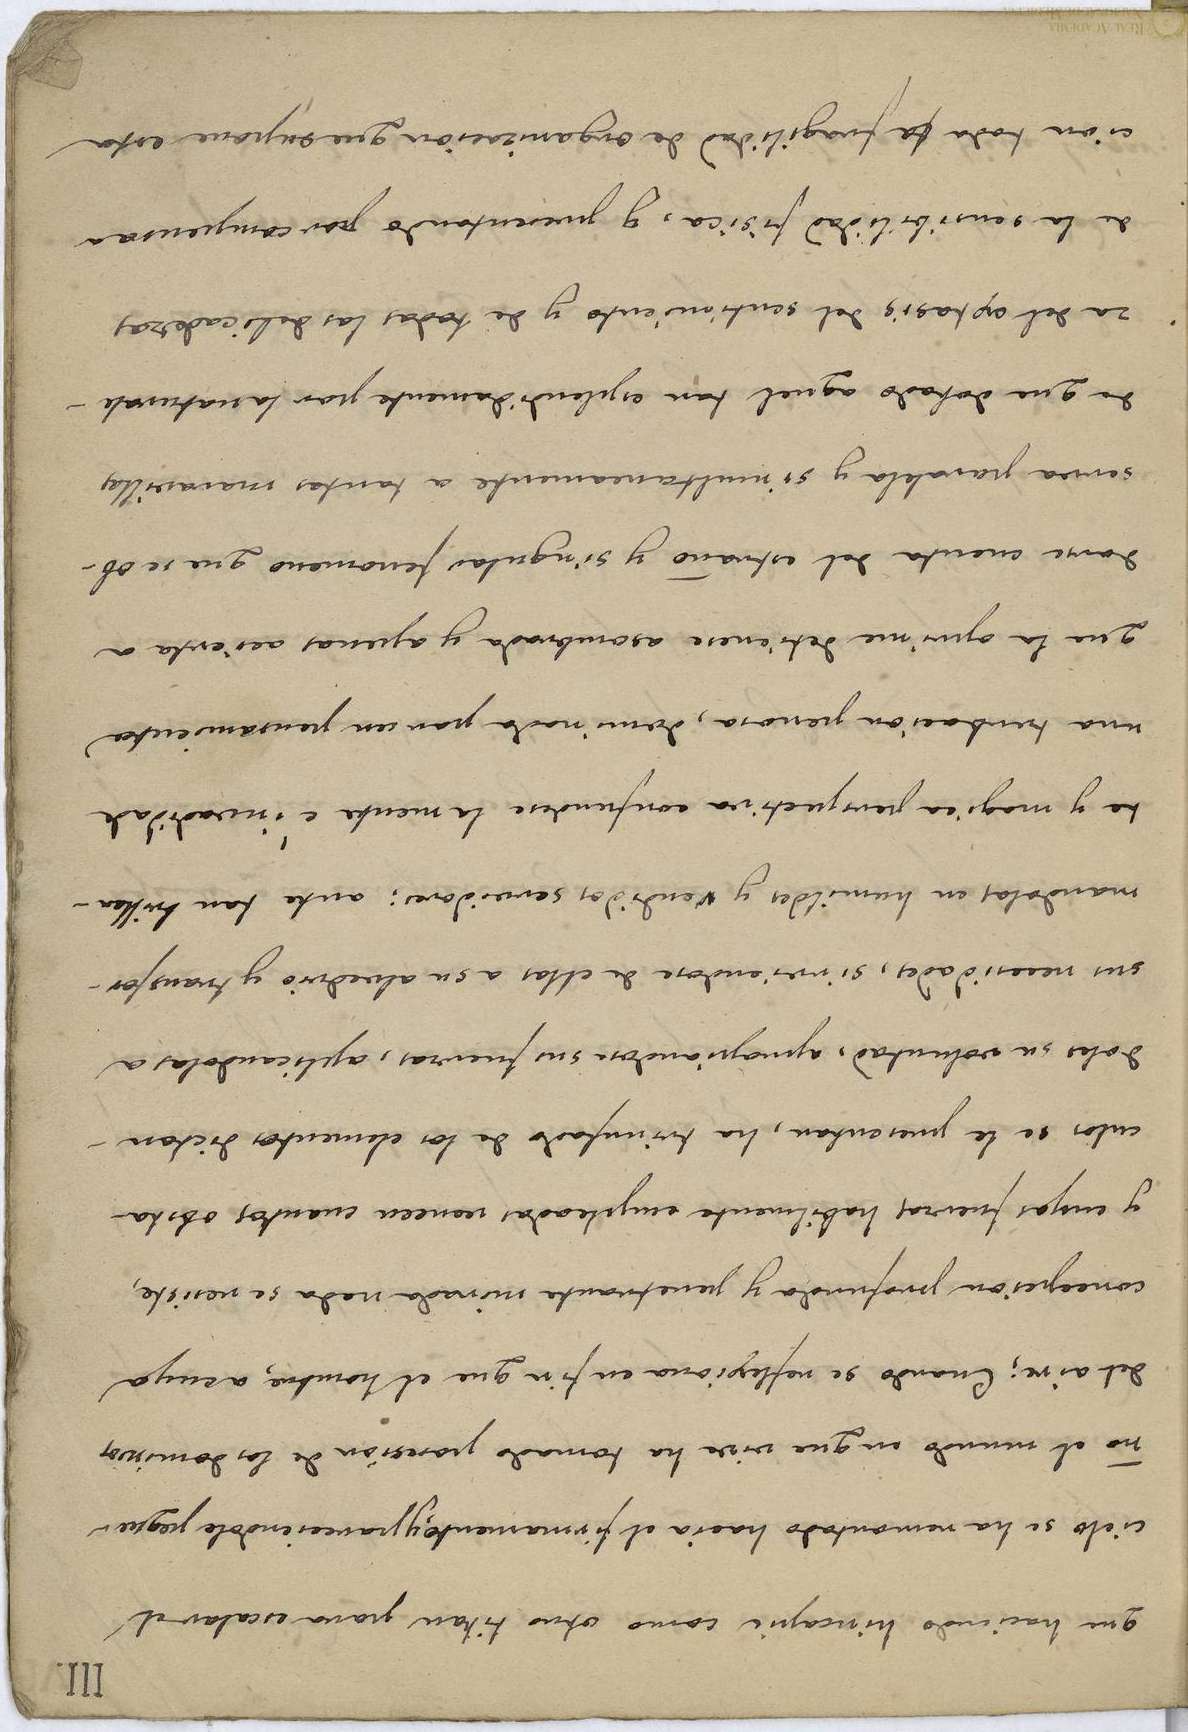 III.
que haciendo hincapié como otro titan para escalar el
cielo se ha remontado hacia el firmamento, y pareciendole peque-
ño el mundo en que vive ha tomado posesión de los dominios
del aire; Cuando se reflexiona en fin que el hombre, a cuya
concepcion profunda y penetrante mirada nada se resiste,
y cuyas fuerzas habilmente empleadas vencen cuantos obsta-
culos se le presentan, ha triunfado de los elementos dictan-
doles su voluntad, apropiandose sus fuerzas, aplicandolas a
sus necesidades, sirviendose de ellas a su alvedrio y transfor-
mandolas en humildes y rendidos servidores; ante tan brillan-
te y magica perspectiva confundese la mente e invadida de
una turbacion penosa, dominada por un pensamiento
que la oprime detienese asombrada y apenas acierta a
darse cuenta del estraño y singular fenomeno que se ob-
serva paralela y simultaneamente a tantas maravillas
de que dotado aquel tan esplendidamente por la naturale-
za del extasis del sentimiento y de todas las delicadezas
de la sensibilidad fisica, y presentando por compensa-
cion toda la fragilidad de organizacion que supone esta
REAL ACADEMIA